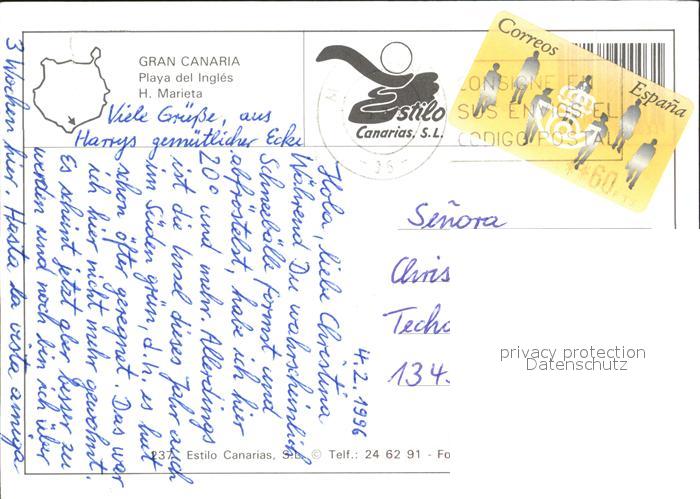 GRAN CANARIA
Playa del Inglés
H. Marieta
Estilo
Canarias, S.L.
Correos
España
CONSIGNE EN
SUS ENVIOS EL
CODIGO POSTAL
60
Viele Grüße, aus
Harrys gemütlicher Ecke
4.2.1996
Hola, liebe Christina
Während Du wahrscheinlich
Schneebälle formst und
abfröstelst, habe ich hier
20° und mehr. Allerdings
ist die Insel dieses Jahr auch
im Süden grün, d.h. es hat
schon öfter geregnet. Das war
ich hier nicht mehr gewohnt.
Es scheint jetzt aber besser zu
werden und noch bin ich über
3 Wochen hier. Hasta la vista amiga
Señora
Chris
Techo
134.
privacy protection
Datenschutz
237 Estilo Canarias, S.L. © Telf.: 24 62 91 - Fo